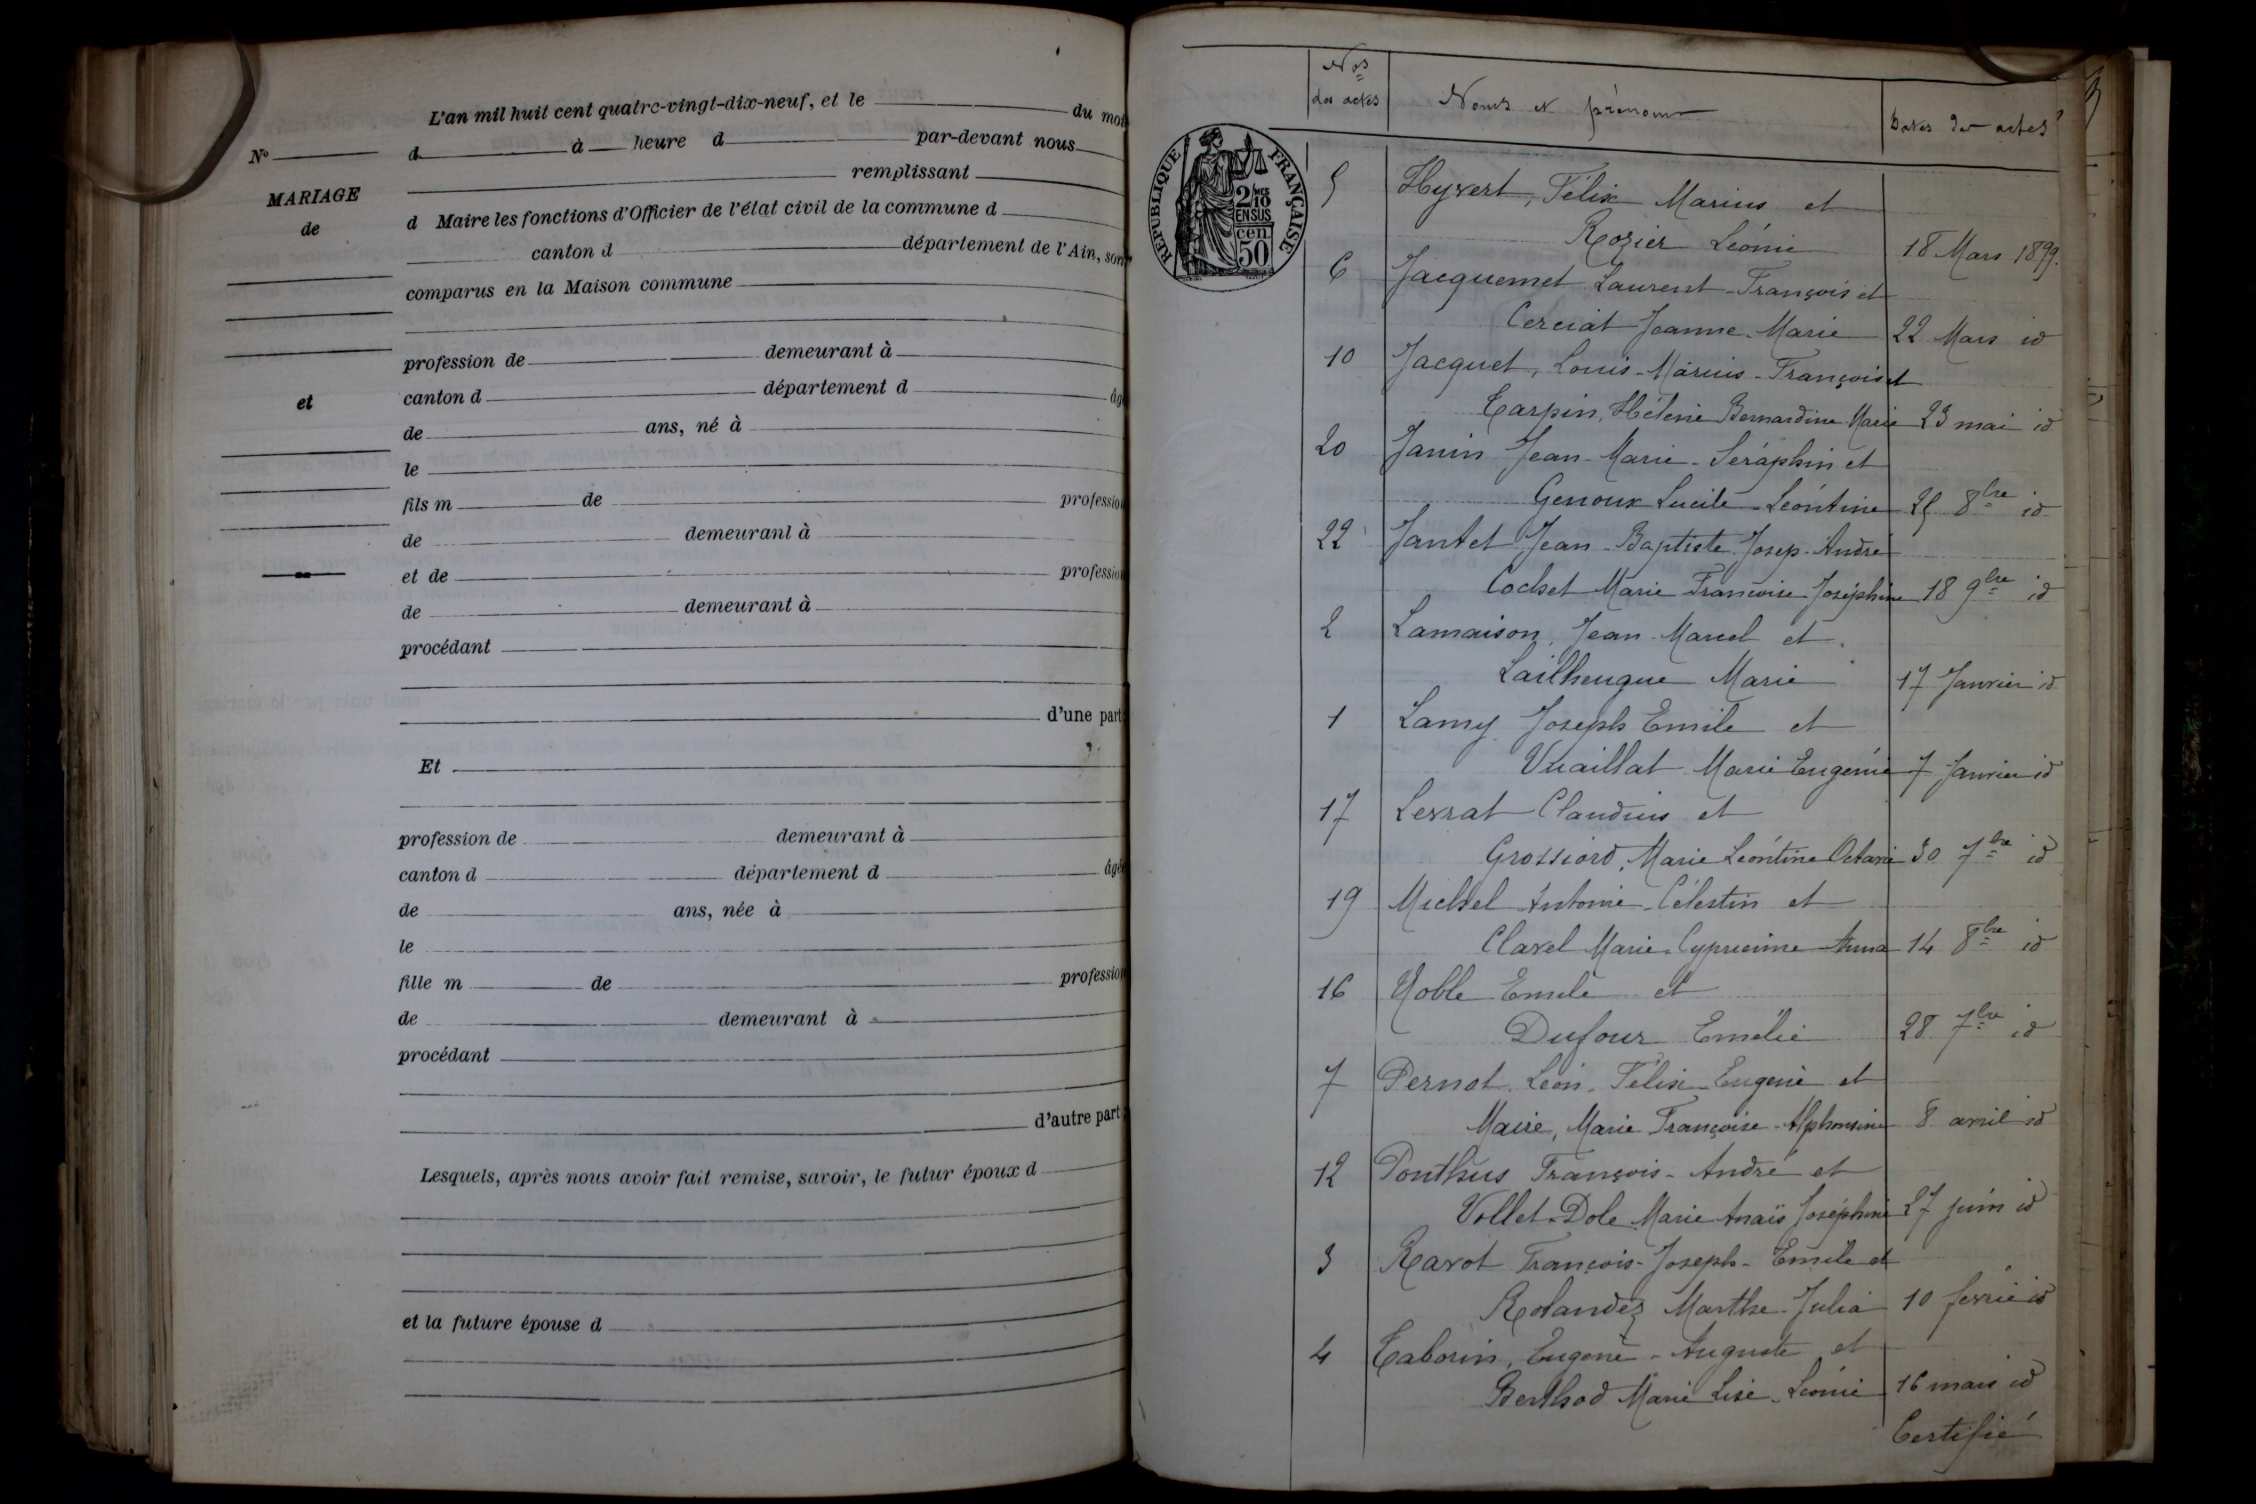 L'an mil huit cent quatre-vingt-dix-neuf, et le du mois
No
d à heure d par-devant nous
remplissant
MARIAGE
de
d Maire les fonctions d'Officier de l'état civil de la commune d
canton d département de l'Ain, sont
comparus en la Maison commune
profession de demeurant à
et
canton d département d âgé
de ans, né à
le
fils m de profession
de demeurant à
et de profession
de demeurant à
procédant
d'une part;
Et
profession de demeurant à
canton d département d âgée
de ans, née à
le
fille m de profession
de demeurant à
procédant
d'autre part;
Lesquels, après nous avoir fait remise, savoir, le futur époux d
et la future épouse d
Nos des actes Noms et prénoms Dates des actes
REPUBLIQUE FRANÇAISE
2/10 MES
EN SUS
50 cen.
5 Hyvert, Félix Marius et
Rozier Léonie 18 Mars 1899.
6 Jacquemet Laurent-François et
Cerciat Jeanne-Marie 22 Mars id
10 Jacquet, Louis-Marius-François et
Carpin, Hélène Bernardine Marie 23 mai id
20 Janin Jean-Marie-Séraphin et
Genoux Lucile-Léontine 25 8bre id
22 Jantet Jean-Baptiste Josep-André
Cochet Marie Francoise Joséphine 18 9bre id
2 Lamaison, Jean-Marcel et
Lailheugue Marie 17 Janvier id
1 Lamy Joseph Emile et
Vuaillat Marie Eugénie 7 Janvier id
17 Levrat Claudius et
Grossiord, Marie Léontine Octavie 30 7bre id
19 Michel Antoine-Célestin et
Clavel Marie-Cyprienne-Anna 14 8bre id
16 Noble Emile et
Dufour Emélie 28 7bre id
7 Pernot Léon-Félix-Eugène et
Maire, Marie Françoise-Alphonsine 8 avril id
12 Ponthus François-André et
Vollet-Dole Marie Anaïs Joséphine 27 juin id
3 Ravot François-Joseph-Emile et
Rolandez Marthe-Julia 10 févrie id
4 Taborin, Eugène-Auguste et
Berthod Marie Lise-Léonie 16 mars id
Certifié